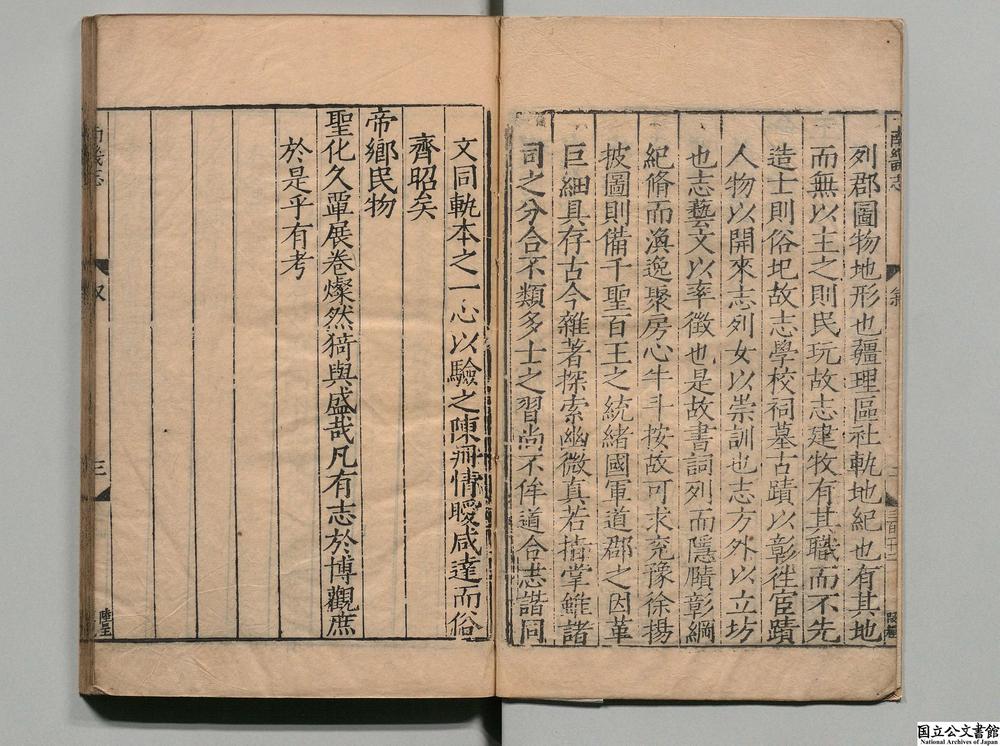 列郡圖物地形也疆理區社軌地紀也有其地
而無以主之則民玩故志建牧有其職而不先
造士則俗圮故志學校祠墓古蹟以彰徃宦蹟
人物以開來志列女以崇訓也志方外以立坊
也志藝文以率徵也是故書詞列而隱賾彰綱
紀脩而渙逸聚房心牛斗按故可求兖豫徐揚
披圖則備千聖百王之統緒國軍道郡之因革
巨細具存古今雜著探索幽微真若指掌雖諸
司之分合不類多士之習尚不侔道合志諧同
文同軌本之一心以驗之陳冊情曖咸達而俗
齊昭矣
帝鄉民物
聖化久單展卷燦然猗與盛哉凡有志於博觀庶
於是乎有考
三
陸呈
国立公文書館
National Archives of Japan